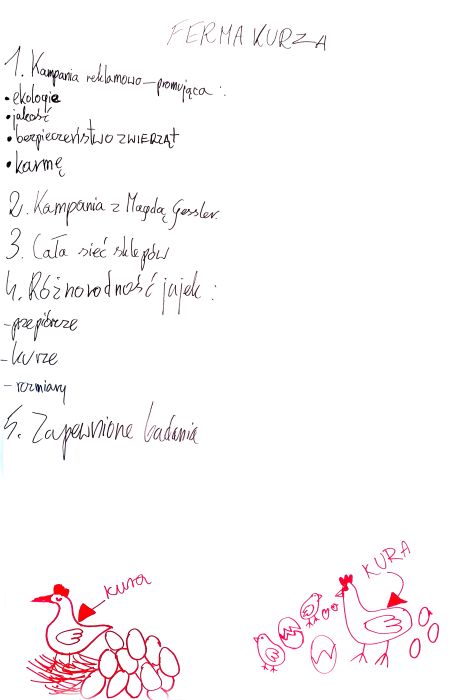 FERMA KURZA
1. Kampania reklamowo-promująca:
• ekologię
• jakość
• bezpieczeństwo ZWIERZĄT
• karmę
2. Kampania z Magdą Gessler.
3. Cała sieć sklepów
4. Różnorodność jajek:
- przepiórcze
- kurze
- rozmiary
5. Zapewnione badania
kura
KURA